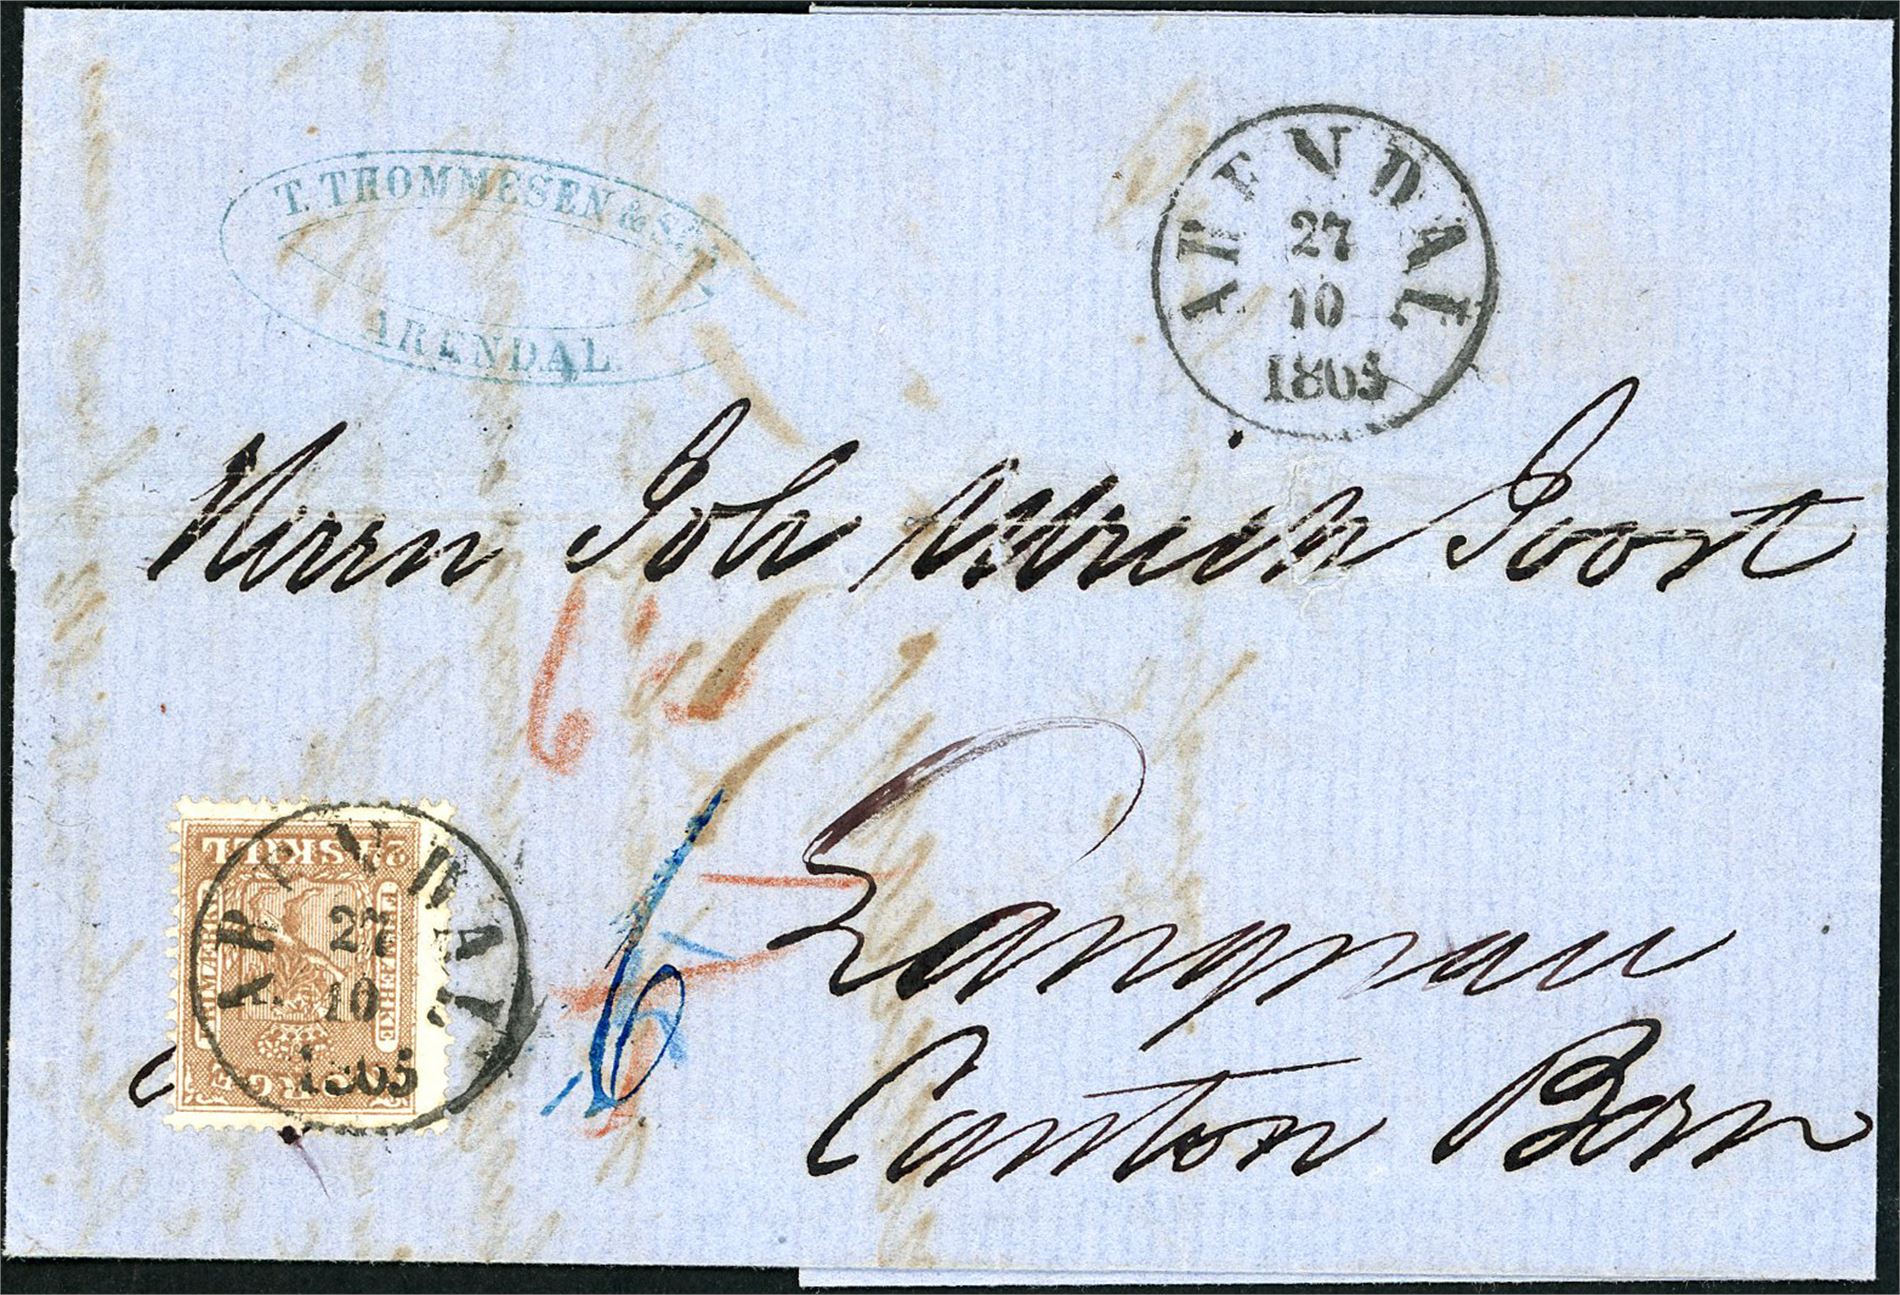 T. THOMMESEN & SÖN
ARENDAL.
ARENDAL
27
10
1865
Herrn Joh Ulrich Joost
6
6
Langnau
Canton Bern
24 SKILL
FRIMÆRKE
NORGE
ARENDAL
27
10
1865